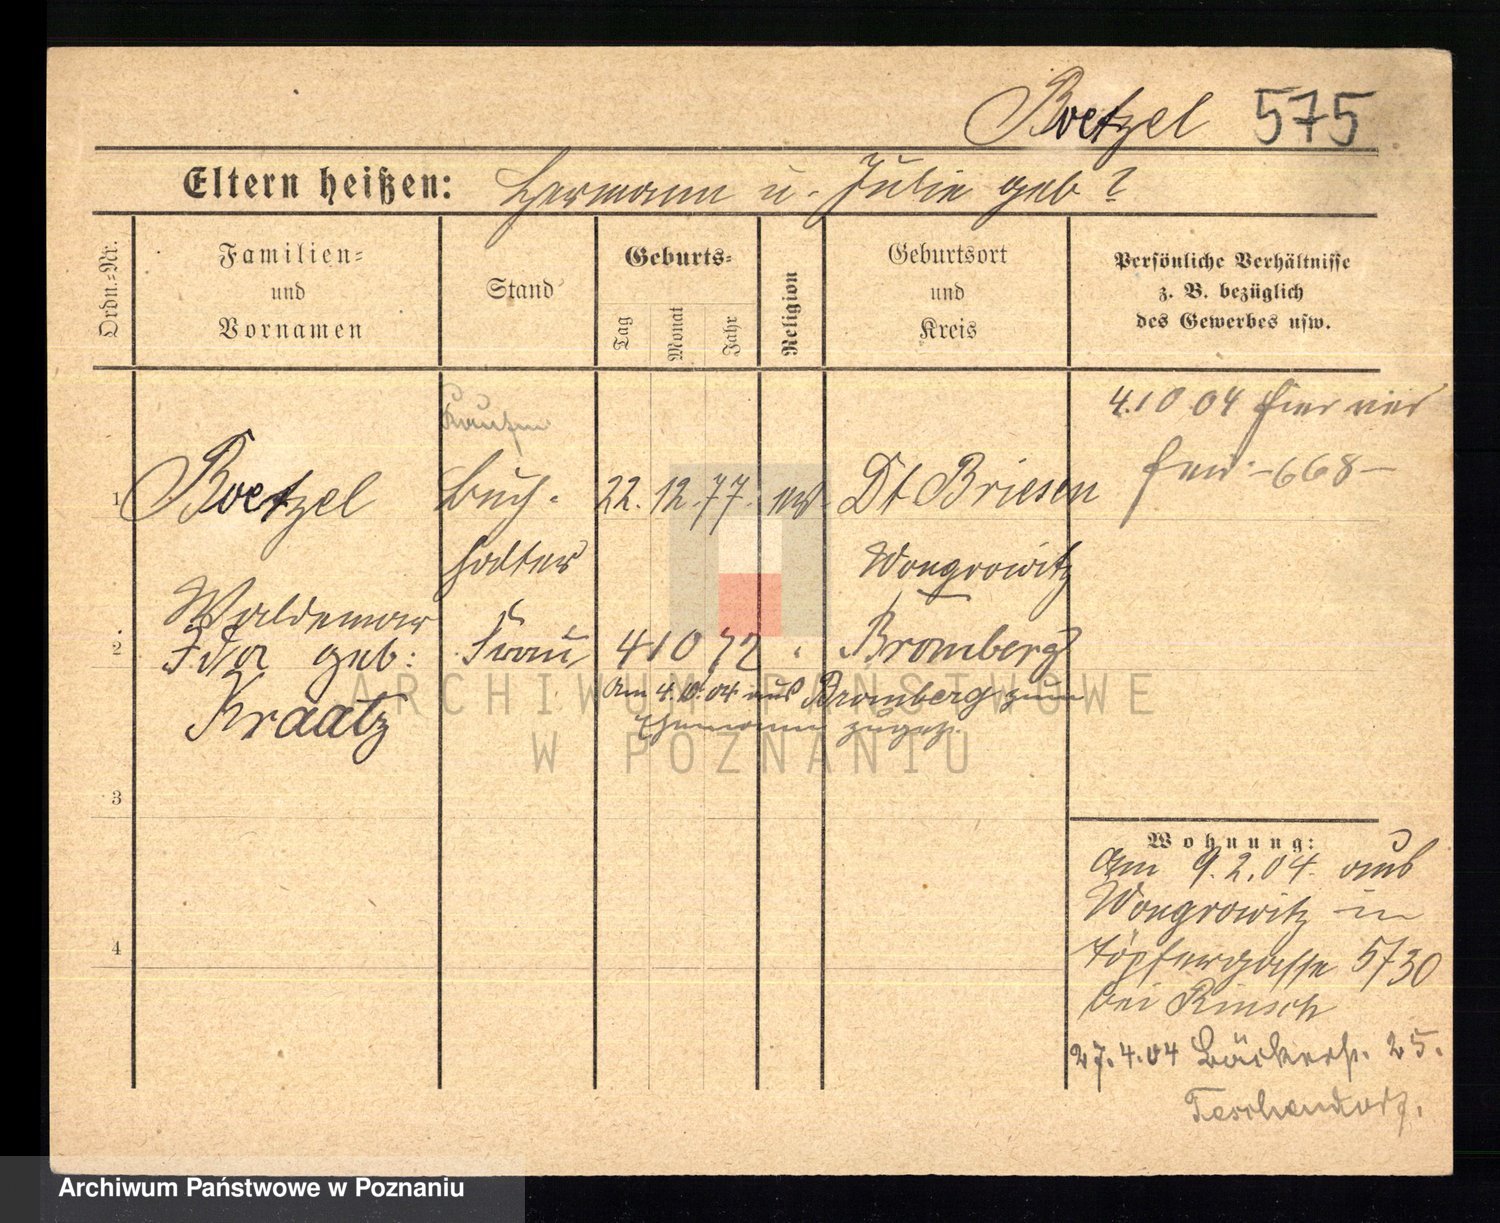 Boetzel 575
Eltern heißen: Hermann u. Julie geb ?
Ordn.-Nr.
Familien-
und
Vornamen
Stand
Geburts-
Tag
Monat
Jahr
Religion
Geburtsort
und
Kreis
Persönliche Verhältnisse
z. B. bezüglich
des Gewerbes usw.
4.10 04 hier
668
Kaufm
1 Boetzel Buch- 22. 12. 77. ev. Dt Briesen
halter Wongrowitz
Waldemar
2 Ida geb: Frau 4 10 72 Bromberg
Kraatz
Am 4.10.04 aus Bromberg zum
Ehemann zugez.
3
4
Wohnung:
Am 9.2.04. aus
Wongrowitz in
Töpfergasse 5/30
bei Rinsch
27.4.04 Bäckerstr. 25.
Teschendorf.
ARCHIWUM PAŃSTWOWE
W POZNANIU
Archiwum Państwowe w Poznaniu